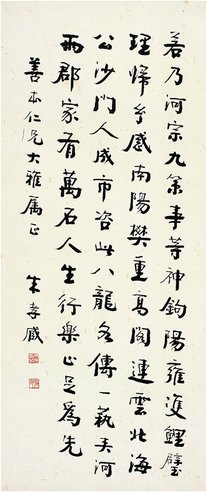 若乃河宗九策事等神鉤陽雍雙鯉璧
理歸玄感南陽樊重高閣連雲北海
公沙門人成市咨此八龍各傳一藝夾河
兩郡家有萬石人生行樂止足為先
善本仁兄大雅屬正
朱孝臧